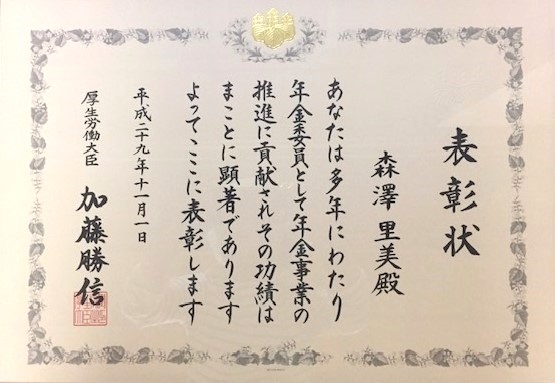 表彰状
森澤里美殿
あなたは多年にわたり
年金委員として年金事業の
推進に貢献されその功績は
まことに顕著であります
よってここに表彰します
平成二十九年十一月一日
厚生労働大臣 加藤勝信